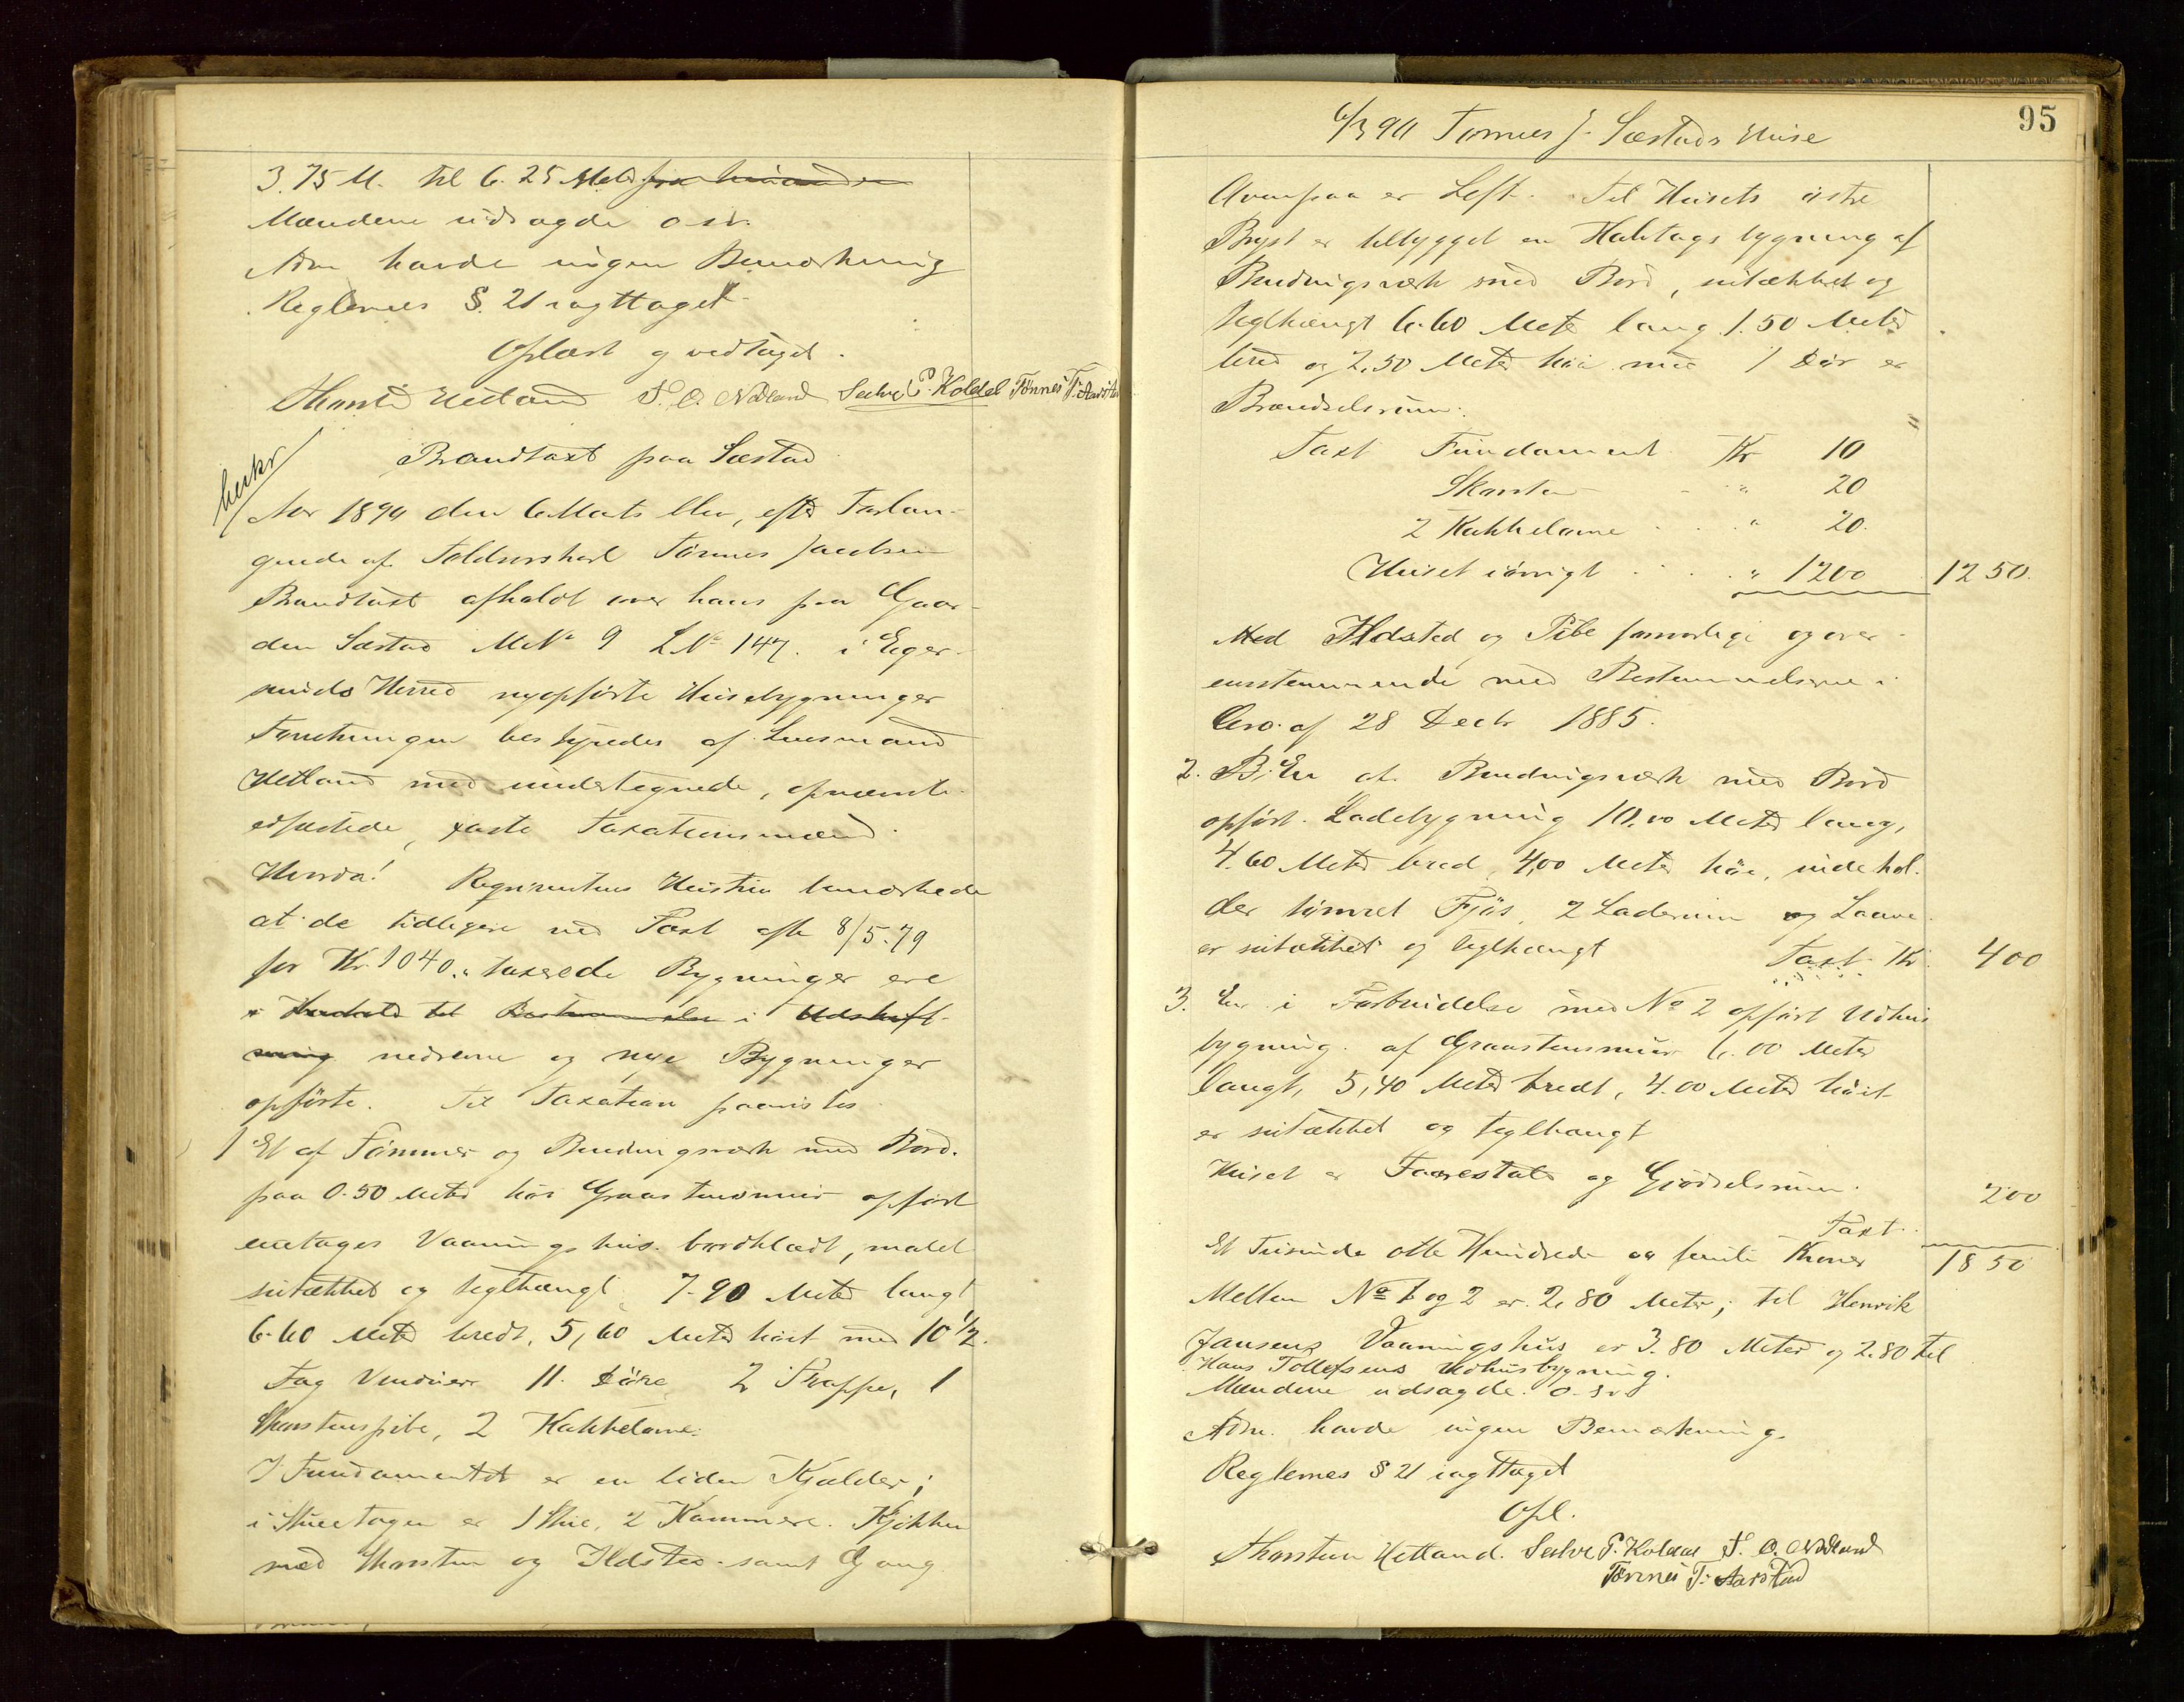 3.75 M. til 6.25 Meter fra hinanden
Mændene udsagde osv.
Adm havde ingen Bemærkning
Reglernes §. 21 iagttaget
Oplæst og vedtaget.
Thorsten Hetland S. O. Nodland Seelve P. Koldal Tønnes T. Aarstad
Brandtaxt paa Sæstad
bekr
Aar 1894 den 6 Marts blev, efter Forlan-
gende af Toldoverkarl Tønnes Jacobsen
Brandtaxt afholdt over hans paa Gaar-
den Sæstad M.N. 9 L.N. 147. i Eger-
sunds Herred nyopførte Husebygninger
Forretningen bestyredes af Lensmand
Hetland med undertegnede, opnævnte
edfæstede, faste Taxationsmænd.
Hvorda! Requirentens Hustru bemærkede
at de tidligere ved Taxt afh 8/5.79
for Kr. 1040 „ taxerede Bygninger ere
i Henhold til Bestemmelse i Udskift-
ning nedrevne og nye Bygninger
opførte. Til Taxation paavistes
1 Et af Tømmer og Bindingsværk med Bord.
paa 0.50 Meter høi Graastensmur opført
eenetages Vaaningshus. bordklædt, malet
sutækket og teglhængt, 7.90 Meter langt
6.60 Meter bredt, 5,60 Meter høit med 10 1/2
Fag Vinduer 11. Døre, 2 Trapper, 1
Skorstenspibe, 2 Kakkelovne.
I Fundamentet er en liden Kjælder;
i Stueetagen er 1 Stue, 2 Kammere. Kjøkken
med Skorsten og Ildsted samt Gang
95
6/3 94 Tønnes J. Sæstads Huse
Ovenpaa er Loft. Til Husets østre
Bryst er tilbygget en Halvtagsbygning af
Bindingsværk med Bord, sutækket og
teglhængt 6.60 Meter lang 1.50 Meter
bred og 2,50 Meter høi med 1 Dør er
Brændselsrum.
Taxt Fundament Kr 10
Skorsten " 20
2 Kakkelovne " 20.
Huset iøvrigt " 1200 1250.
Med Ildsted og Pibe forsvarlige og over-
ensstemmende med Bestemmelserne i
Circ. af 28 Decbr 1885.
2. B. En af Bindingsværk med Bord
opført Ladebygning 10,00 Meter lang,
4.60 Meter bred, 4,00 Meter høi, indehol-
der tømret Fjøs, 2 Laderum og Laave
er sutækket og teglhængt Taxt Kr. 400
3. En i Forbindelse med No 2 opført Udhus
bygning af Graastensmur 6.00 Meter
langt, 5,40 Meter bredt, 4.00 Meter høit
er sutækket og teglhængt
Huset er Faarestald og Gjødselsrum.
Taxt 200
Et Tusinde otte Hundrede og femti Kroner 1850
Mellem No 1 og 2 er 2,80 Meter; til Henrik
Jansens Vaaningshus er 3.80 Meter og 2.80 til
Hans Tollefsens Udhusbygning.
Mændene udsagde o.s.v
Adm. havde ingen Bemærkning.
Reglernes § 21 iagttaget
Opl.
Thorsten Hetland. Seelve P. Koldal S. O. Nodland
Tønnes T. Aarstad